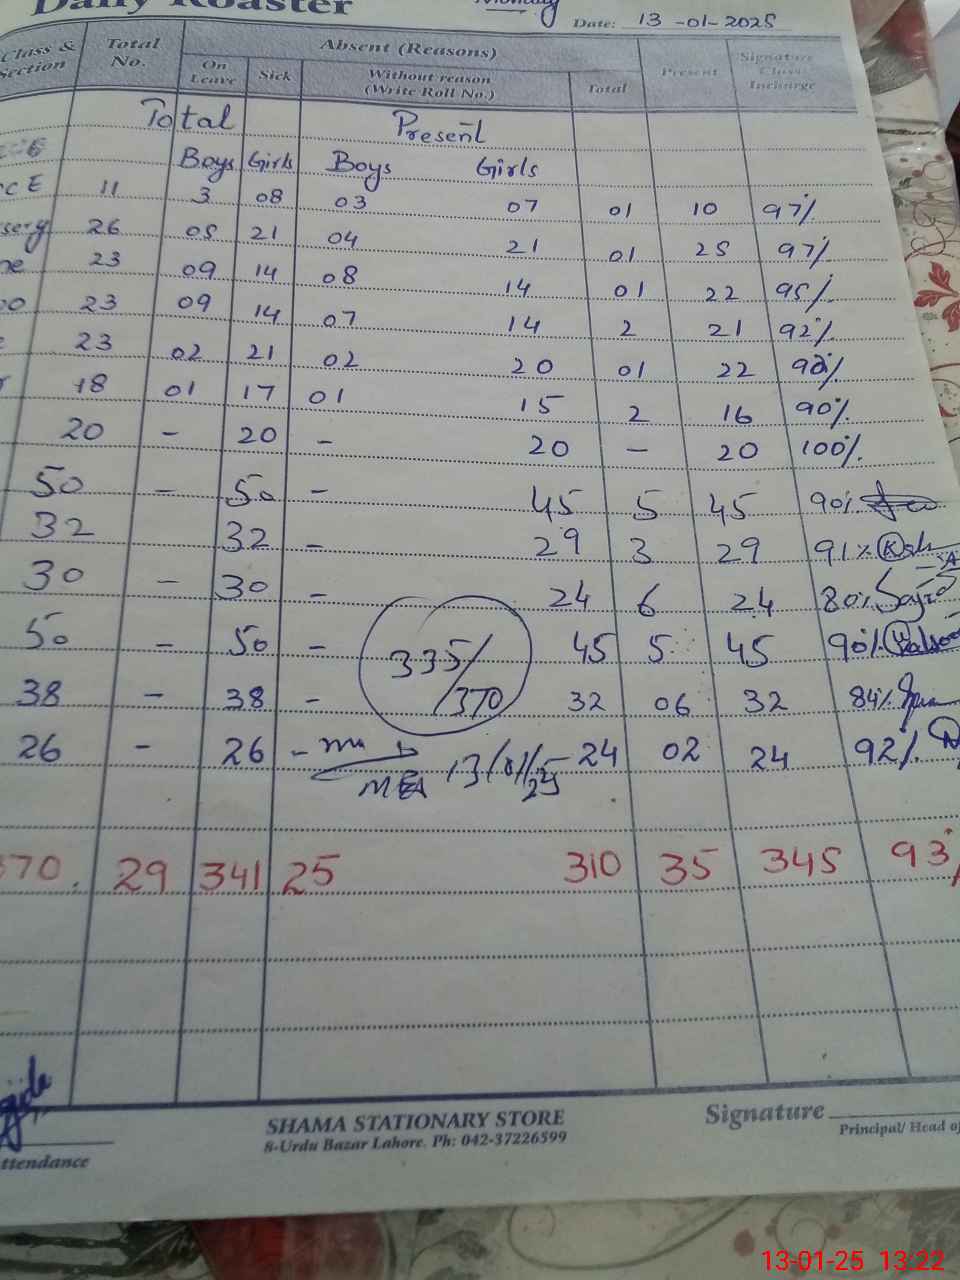 Daily Roaster
Date: 13-01-2025
Class & Section Total No. Absent (Reasons) Present Signature Class Incharge
On Leave Sick Without reason (Write Roll No.) Total
Total Present
Boys Girls Boys Girls
c E 11 3 08 03 07 01 10 97%
sery 26 05 21 04 21 01 25 97%
ne 23 09 14 08 14 01 22 95%
23 09 14 07 14 2 21 92%
23 02 21 02 20 01 22
18 01 17 01 15 2 16 90%
20 - 20 - 20 - 20 100%
50 - 50 - 45 5 45 90%
32 32 - 29 3 29 91%
30 - 30 - 24 6 24 80%
50 - 50 - 45 5 45 90%
335/370
38 - 38 - 32 06 32 84%
26 - 26 - 24 02 24 92%
13/01/25
370. 29 341 25 310 35 345 93%
SHAMA STATIONARY STORE
8-Urdu Bazar Lahore. Ph: 042-37226599
Signature
Principal/ Head of
ttendance
13-01-25 13:22